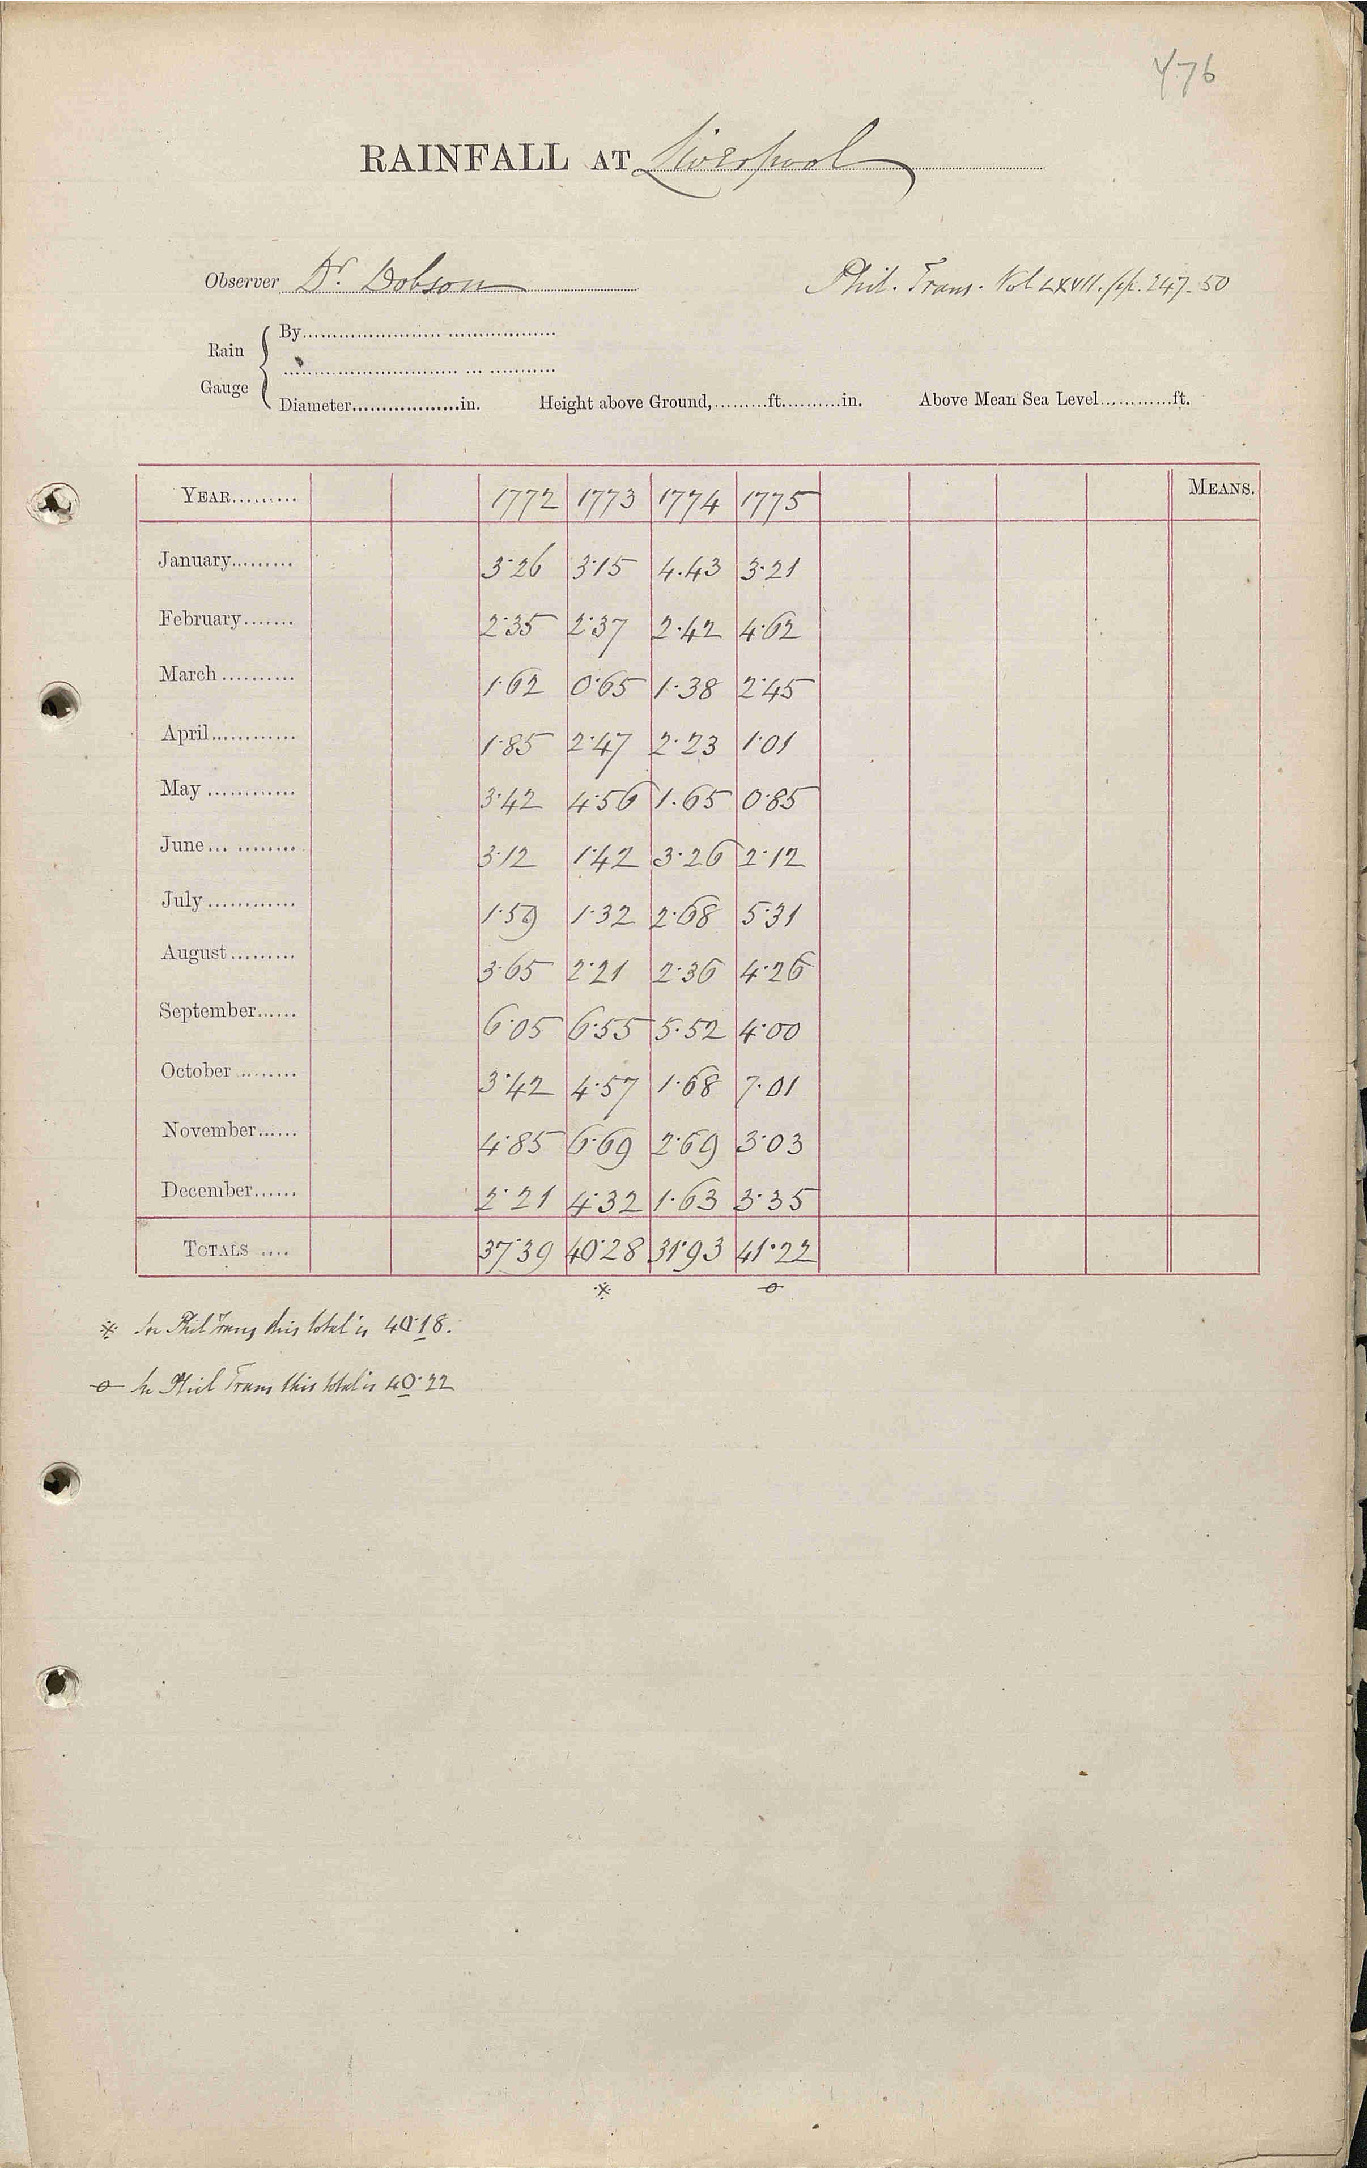 476
RAINFALL AT Liverpool
Observer Dr. Dobson
Phil. Trans. Vol LXVII. pp. 247-50
Rain Gauge { By
Diameter in. Height above Ground, ft. in. Above Mean Sea Level ft.
YEAR 1772 1773 1774 1775 MEANS.
January 3·26 3·15 4.43 3·21
February 2·35 2·37 2·42 4·62
March 1·62 0·65 1·38 2·45
April 1·85 2·47 2·23 1·01
May 3·42 4·56 1·65 0·85
June 3·12 1·42 3·26 2·12
July 1·59 1·32 2·68 5·31
August 3·65 2·21 2·36 4·26
September 6·05 6·55 5·52 4·00
October 3·42 4·57 1·68 7·01
November 4·85 6·69 2·69 3·03
December 2·21 4·32 1·63 3·35
TOTALS 37·39 40·28 31·93 41·22
※ In Phil Trans this total is 40·18.
o In Phil Trans this total is 40·22